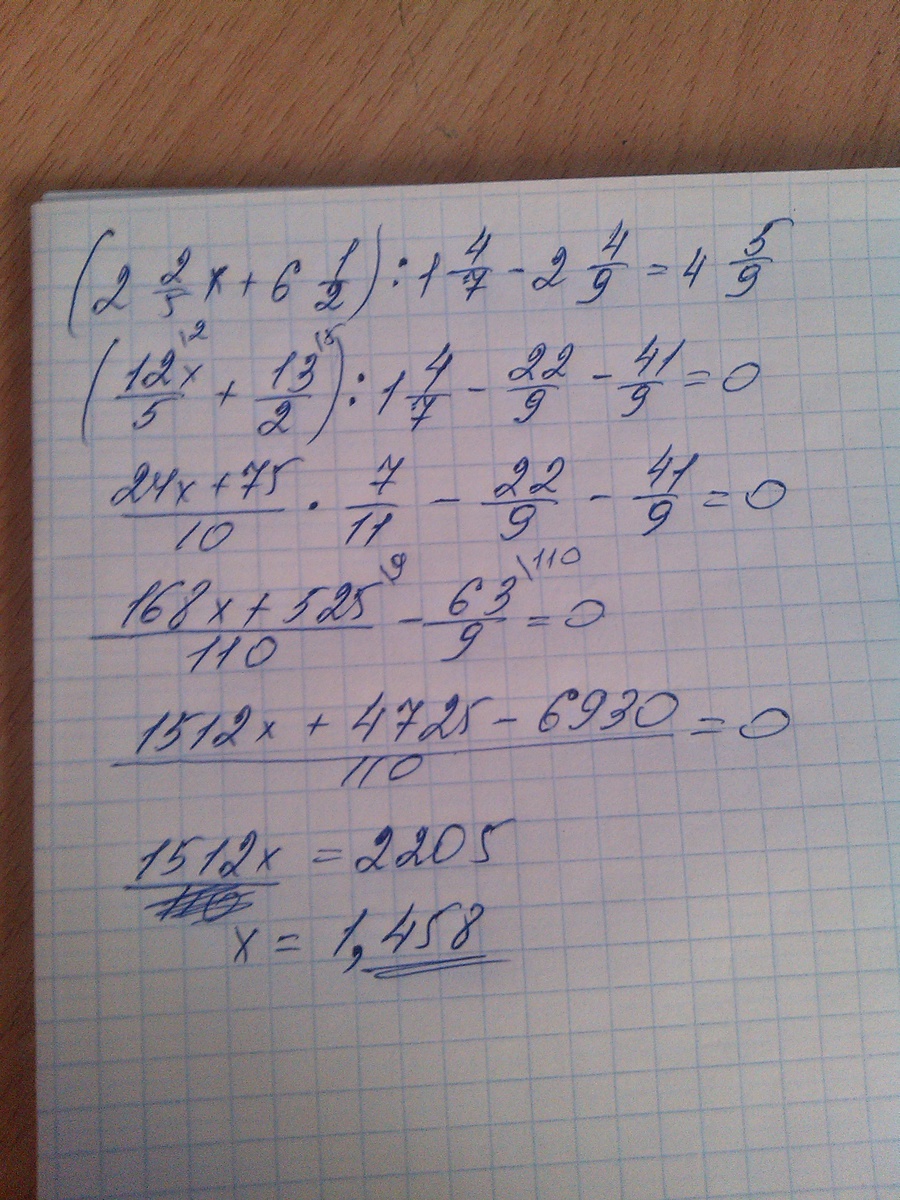 (2 2/5 x + 6 1/2) : 1 4/7 - 2 4/9 = 4 5/9
(12x/5 \2 + 13/2 \5) : 1 4/7 - 22/9 - 41/9 = 0
24x + 75/10 · 7/11 - 22/9 - 41/9 = 0
168x + 525/110 \9 - 63/9 \110 = 0
1512x + 4725 - 6930/110 = 0
1512x = 2205
x = 1,458